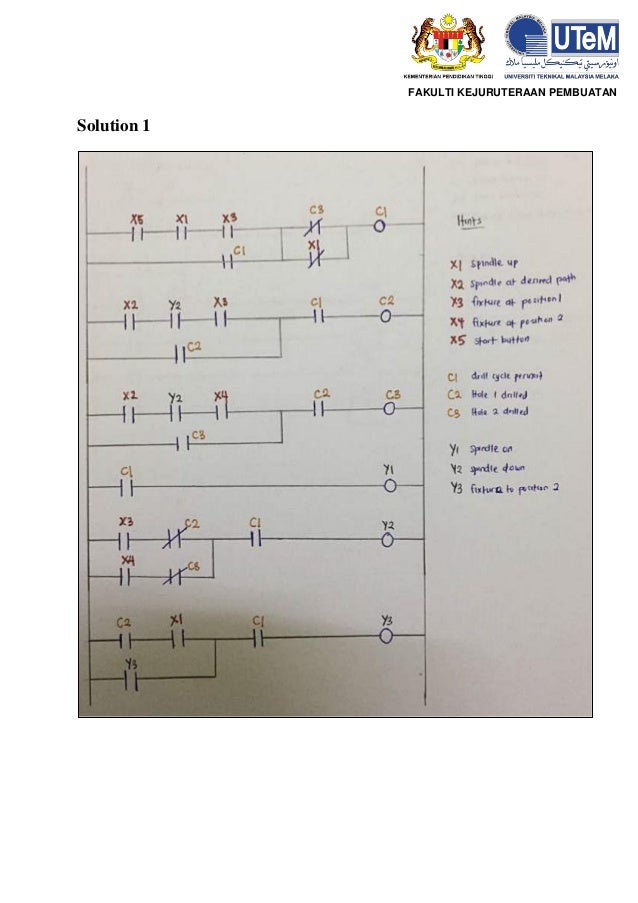 KEMENTERIAN PENDIDIKAN TINGGI
UTeM
اونيۏرسيتي تيكنيكل مليسيا ملاك
UNIVERSITI TEKNIKAL MALAYSIA MELAKA
FAKULTI KEJURUTERAAN PEMBUATAN
Solution 1
X5 X1 X3 C3 C1
C1 X1
X2 Y2 X3 C1 C2
C2
X2 Y2 X4 C2 C3
C3
C1 Y1
X3 C2 C1 Y2
X4 C3
C2 X1 C1 Y3
Y3
Hints
X1 spindle up
X2 spindle at desired path
X3 fixture at position 1
X4 fixture at position 2
X5 start button
C1 drill cycle permit
C2 Hole 1 drilled
C3 Hole 2 drilled
Y1 spindle on
Y2 spindle down
Y3 fixture to position 2